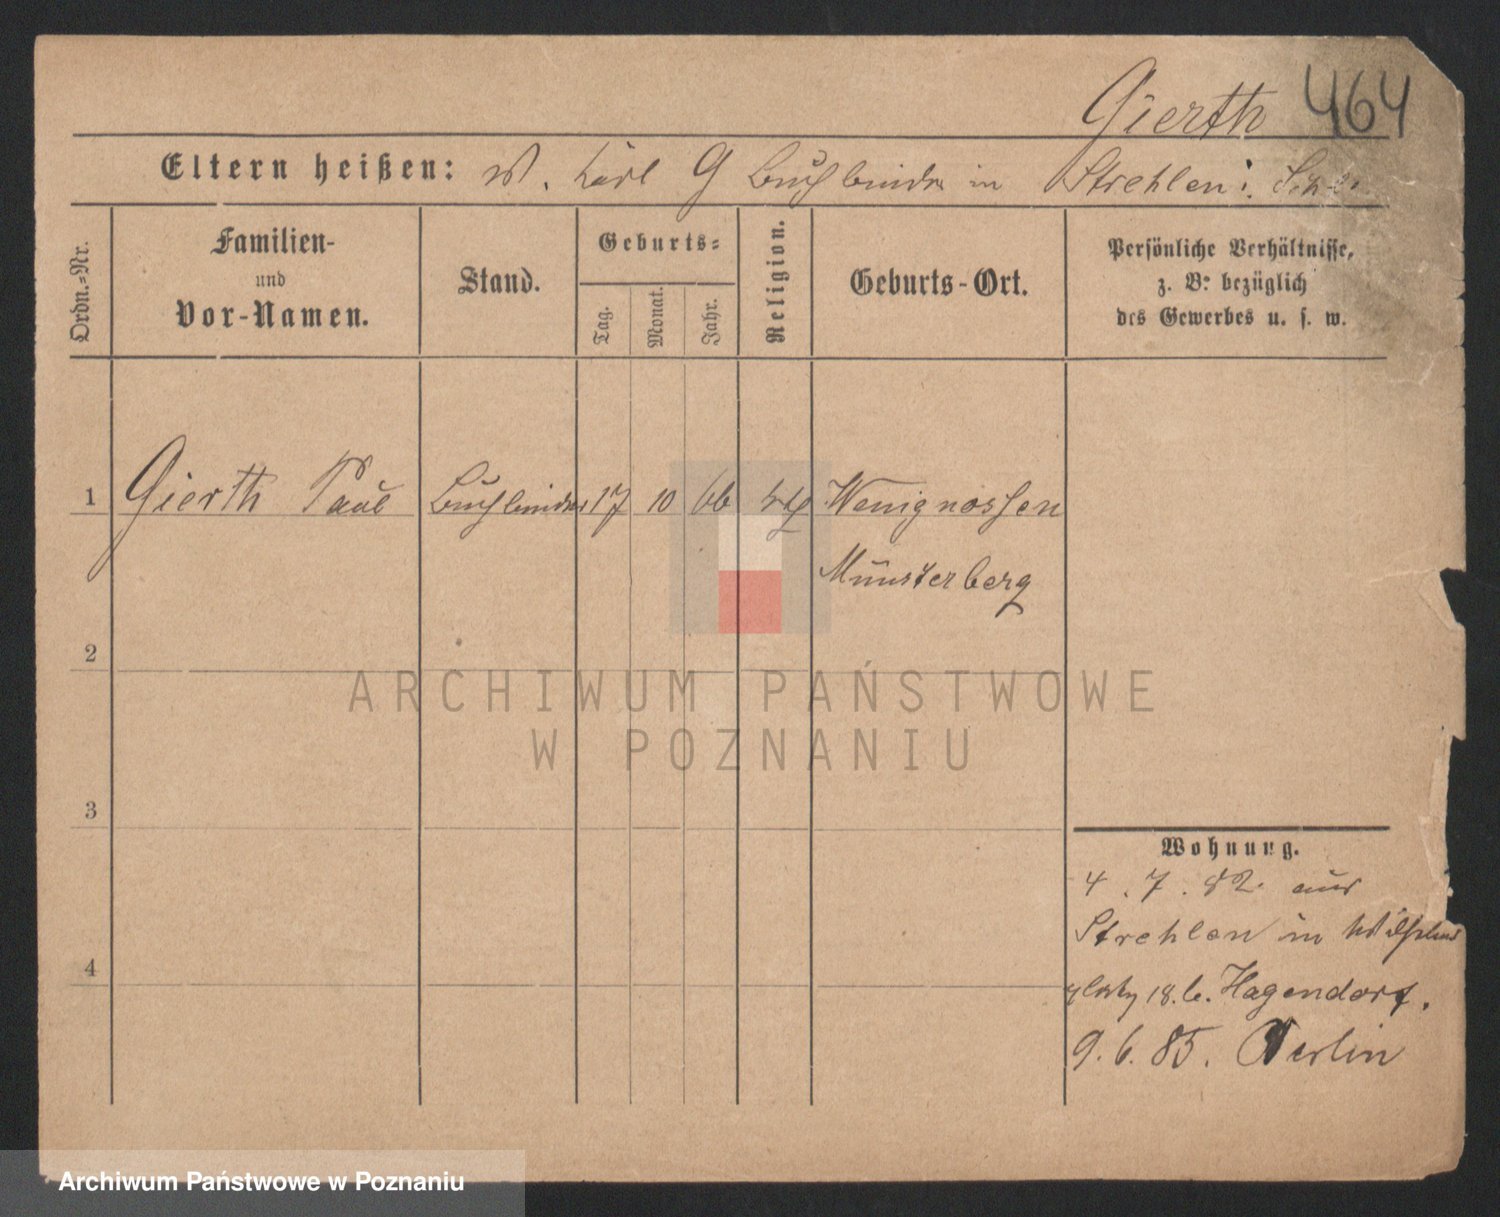 Gierth 464
Eltern heißen: Karl G Buchbinder in Strehlen i.
Ordn.-Nr.
Familien-
und
Vor-Namen.
Stand.
Geburts-
Tag.
Monat.
Jahr.
Religion.
Geburts-Ort.
Persönliche Verhältnisse,
z. B. bezüglich
des Gewerbes u. s. w.
1 Gierth Paul Buchbinder 17 10 66 Wenignossen
Münsterberg
2
ARCHIWUM PAŃSTWOWE
W POZNANIU
3
Wohnung.
4. 7. 82. aus
Strehlen in Wilhelms
4
platz 18. b. Hagendorf.
9. 6. 85. Berlin
Archiwum Państwowe w Poznaniu